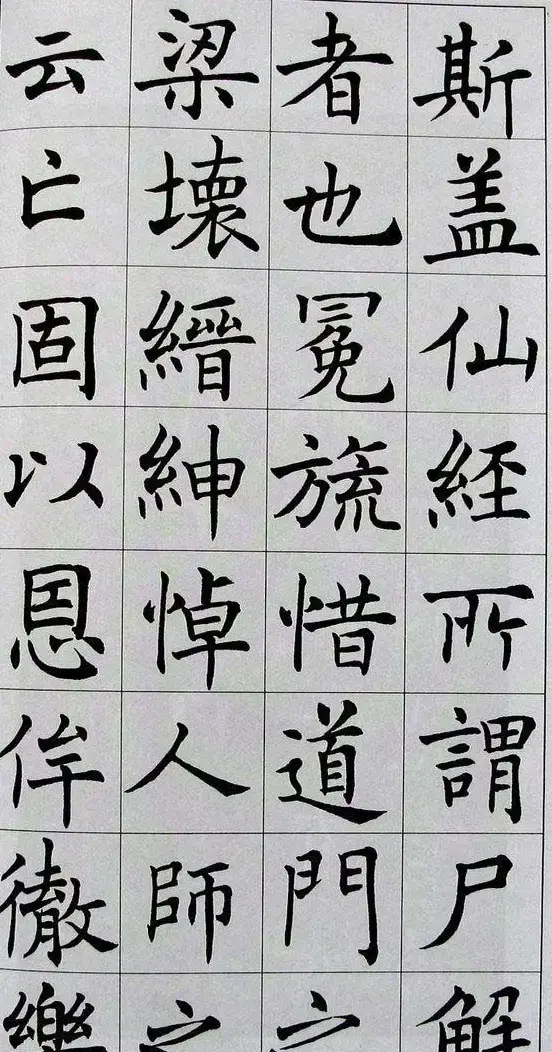 斯盖仙経所謂尸解
者也冕旒惜道門之
梁壊縉紳悼人師之
云亡固以恩侔徹樂